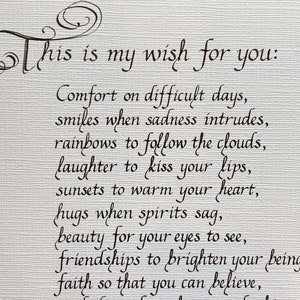 This is my wish for you:
Comfort on difficult days,
smiles when sadness intrudes,
rainbows to follow the clouds,
laughter to kiss your lips,
sunsets to warm your heart,
hugs when spirits sag,
beauty for your eyes to see,
friendships to brighten your being
faith so that you can believe,